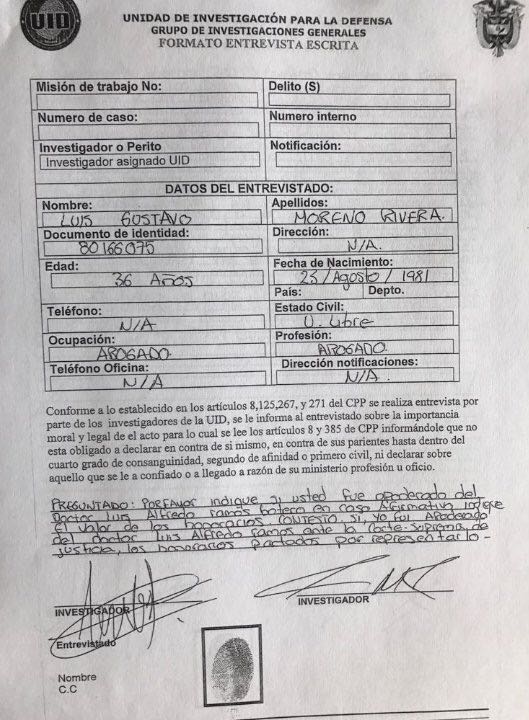 UID
UNIDAD DE INVESTIGACIÓN PARA LA DEFENSA
GRUPO DE INVESTIGACIONES GENERALES
FORMATO ENTREVISTA ESCRITA
Misión de trabajo No:
Delito (S)
Numero de caso:
Numero interno
Investigador o Perito
Notificación:
Investigador asignado UID
DATOS DEL ENTREVISTADO:
Nombre:
Apellidos:
LUIS GUSTAVO
MORENO RIVERA.
Documento de identidad:
Dirección:
80166075
N/A.
Edad:
Fecha de Nacimiento:
36 AÑOS
25/Agosto/1981
País: Depto.
Teléfono:
Estado Civil:
N/A
U. Libre
Ocupación:
Profesión:
ABOGADO
ABOGADO.
Teléfono Oficina:
Dirección notificaciones:
N/A
N/A.
Conforme a lo establecido en los artículos 8,125,267, y 271 del CPP se realiza entrevista por
parte de los investigadores de la UID, se le informa al entrevistado sobre la importancia
moral y legal de el acto para lo cual se lee los artículos 8 y 385 de CPP informándole que no
esta obligado a declarar en contra de si mismo, en contra de sus parientes hasta dentro del
cuarto grado de consanguinidad, segundo de afinidad o primero civil, ni declarar sobre
aquello que se le a confiado o a llegado a razón de su ministerio profesión u oficio.
PREGUNTADO: PORFAVOR indique si usted fue apoderado del
Doctor Luis Alfredo Ramos Botero en caso Afirmativo indique
el valor de los honorarios CONTESTO SI, yo fui Apoderado
del doctor Luis Alfredo Ramos ante la Corte Suprema de
justicia, los honorarios pactados por representarlo -
INVESTIGADOR
INVESTIGADOR
Entrevistado
Nombre
C.C